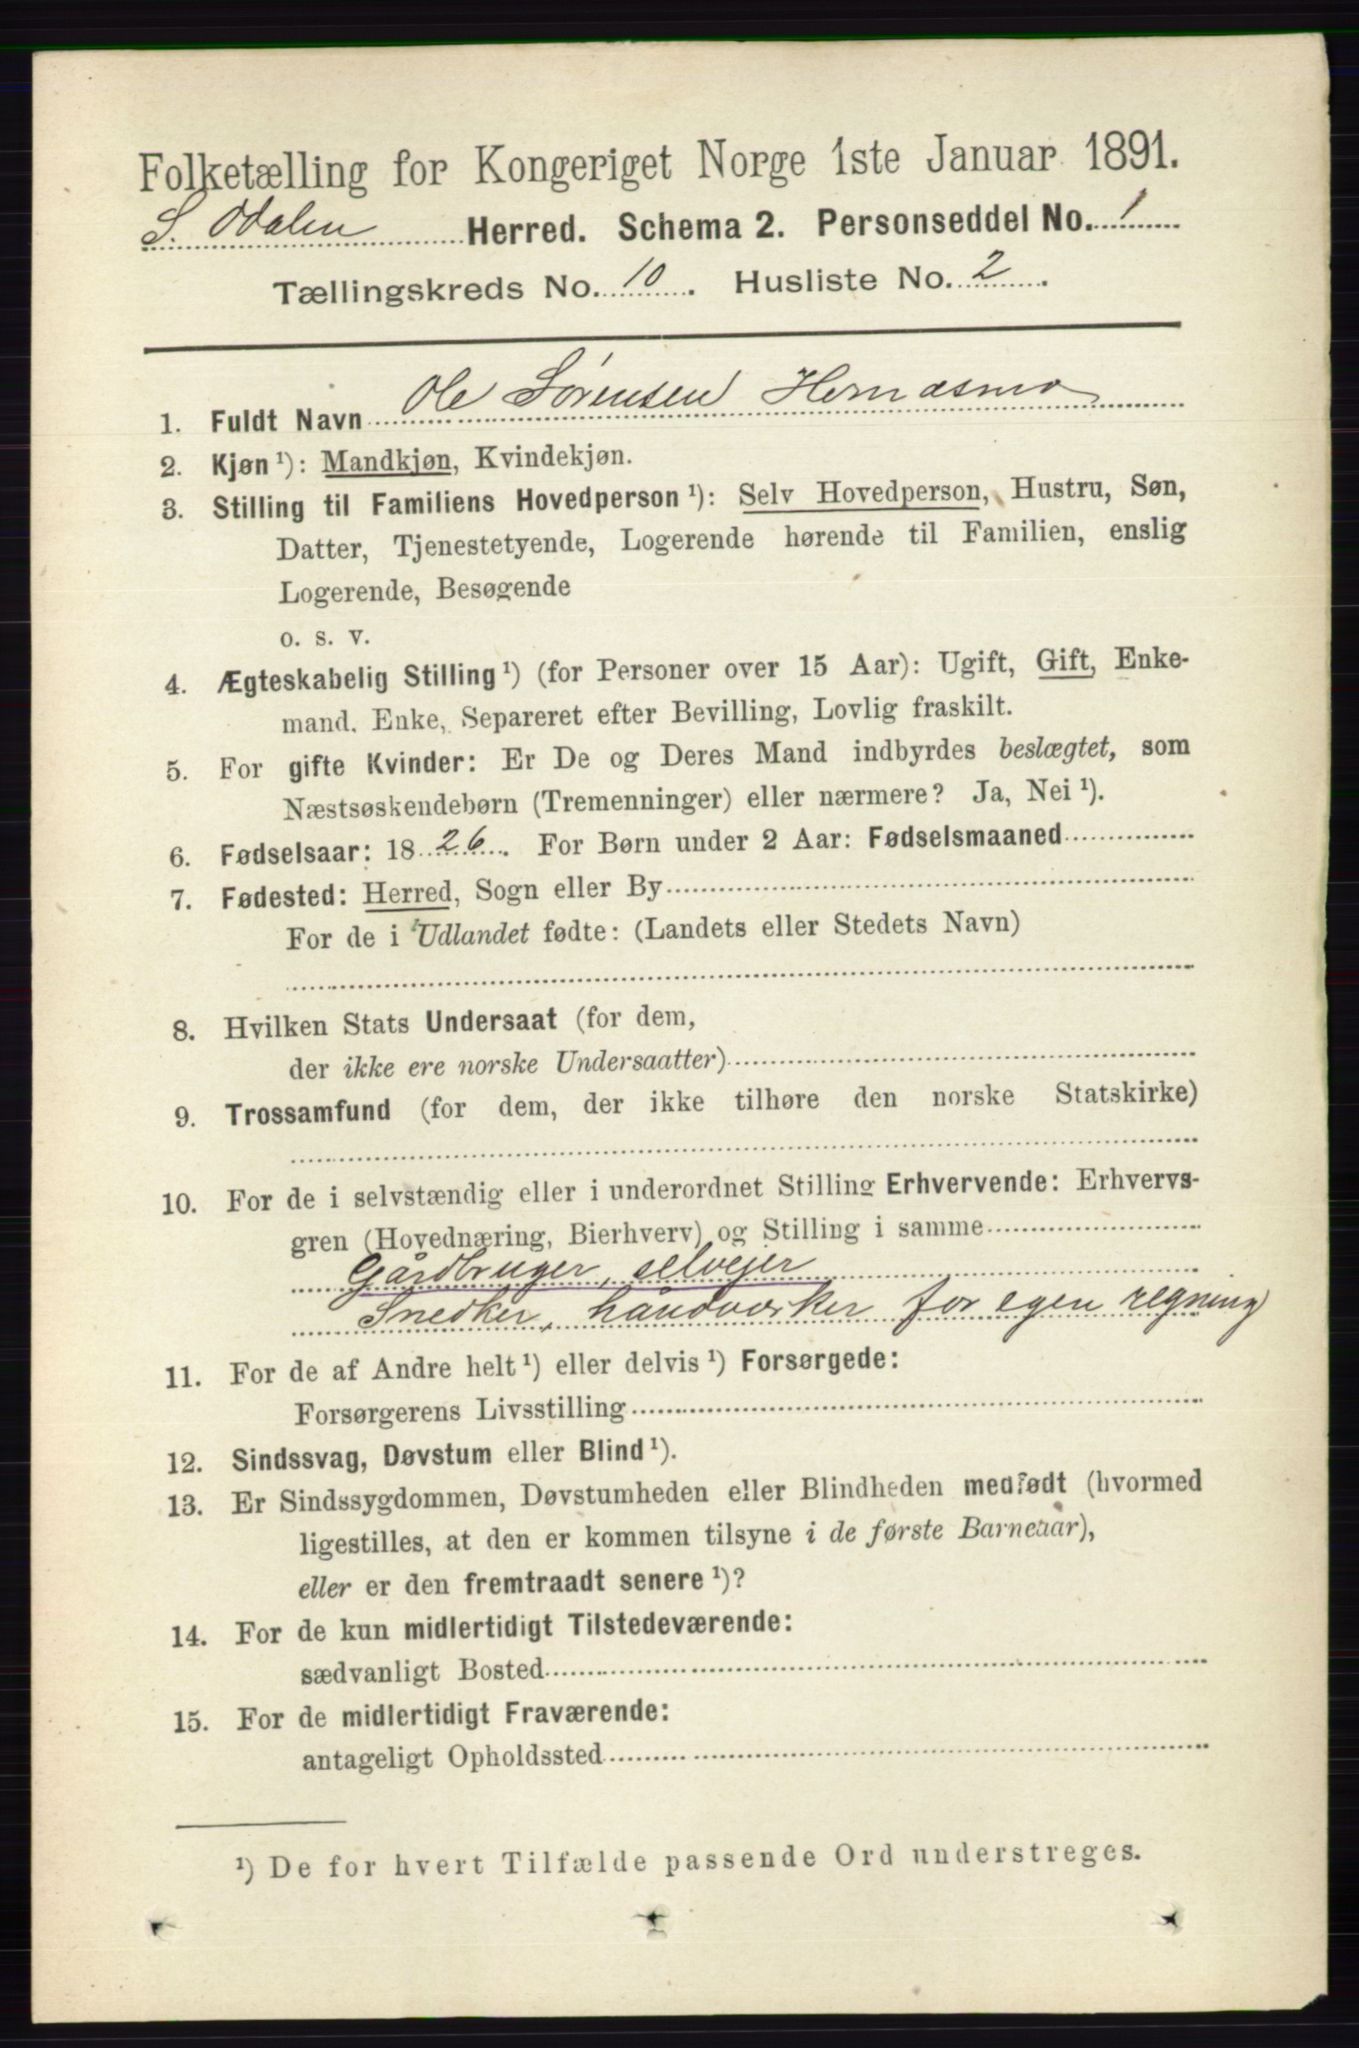 Folketælling for Kongeriget Norge 1ste Januar 1891.
S. Odalen Herred. Schema 2. Personseddel No. 1
Tællingskreds No. 10. Husliste No. 2.
1. Fuldt Navn Ole Sørensen Hernæsmo
2. Kjøn ¹): Mandkjøn, Kvindekjøn.
3. Stilling til Familiens Hovedperson ¹): Selv Hovedperson, Hustru, Søn,
Datter, Tjenestetyende, Logerende hørende til Familien, enslig
Logerende, Besøgende
o. s. v.
4. Ægteskabelig Stilling ¹) (for Personer over 15 Aar): Ugift, Gift, Enke-
mand, Enke, Separeret efter Bevilling, Lovlig fraskilt.
5. For gifte Kvinder: Er De og Deres Mand indbyrdes beslægtet, som
Næstsøskendebørn (Tremenninger) eller nærmere? Ja, Nei ¹).
6. Fødselsaar: 1826. For Børn under 2 Aar: Fødselsmaaned
7. Fødested: Herred, Sogn eller By
For de i Udlandet fødte: (Landets eller Stedets Navn)
8. Hvilken Stats Undersaat (for dem,
der ikke ere norske Undersaatter)
9. Trossamfund (for dem, der ikke tilhøre den norske Statskirke)
10. For de i selvstændig eller i underordnet Stilling Erhvervende: Erhvervs-
gren (Hovednæring, Bierhverv) og Stilling i samme
Gårdbruger, selvejer
Snedker, håndværker for egen regning
11. For de af Andre helt ¹) eller delvis ¹) Forsørgede:
Forsørgerens Livsstilling
12. Sindssvag, Døvstum eller Blind ¹).
13. Er Sindssygdommen, Døvstumheden eller Blindheden medfødt (hvormed
ligestilles, at den er kommen tilsyne i de første Barneaar),
eller er den fremtraadt senere ¹)?
14. For de kun midlertidigt Tilstedeværende:
sædvanligt Bosted
15. For de midlertidigt Fraværende:
antageligt Opholdssted
¹) De for hvert Tilfælde passende Ord understreges.